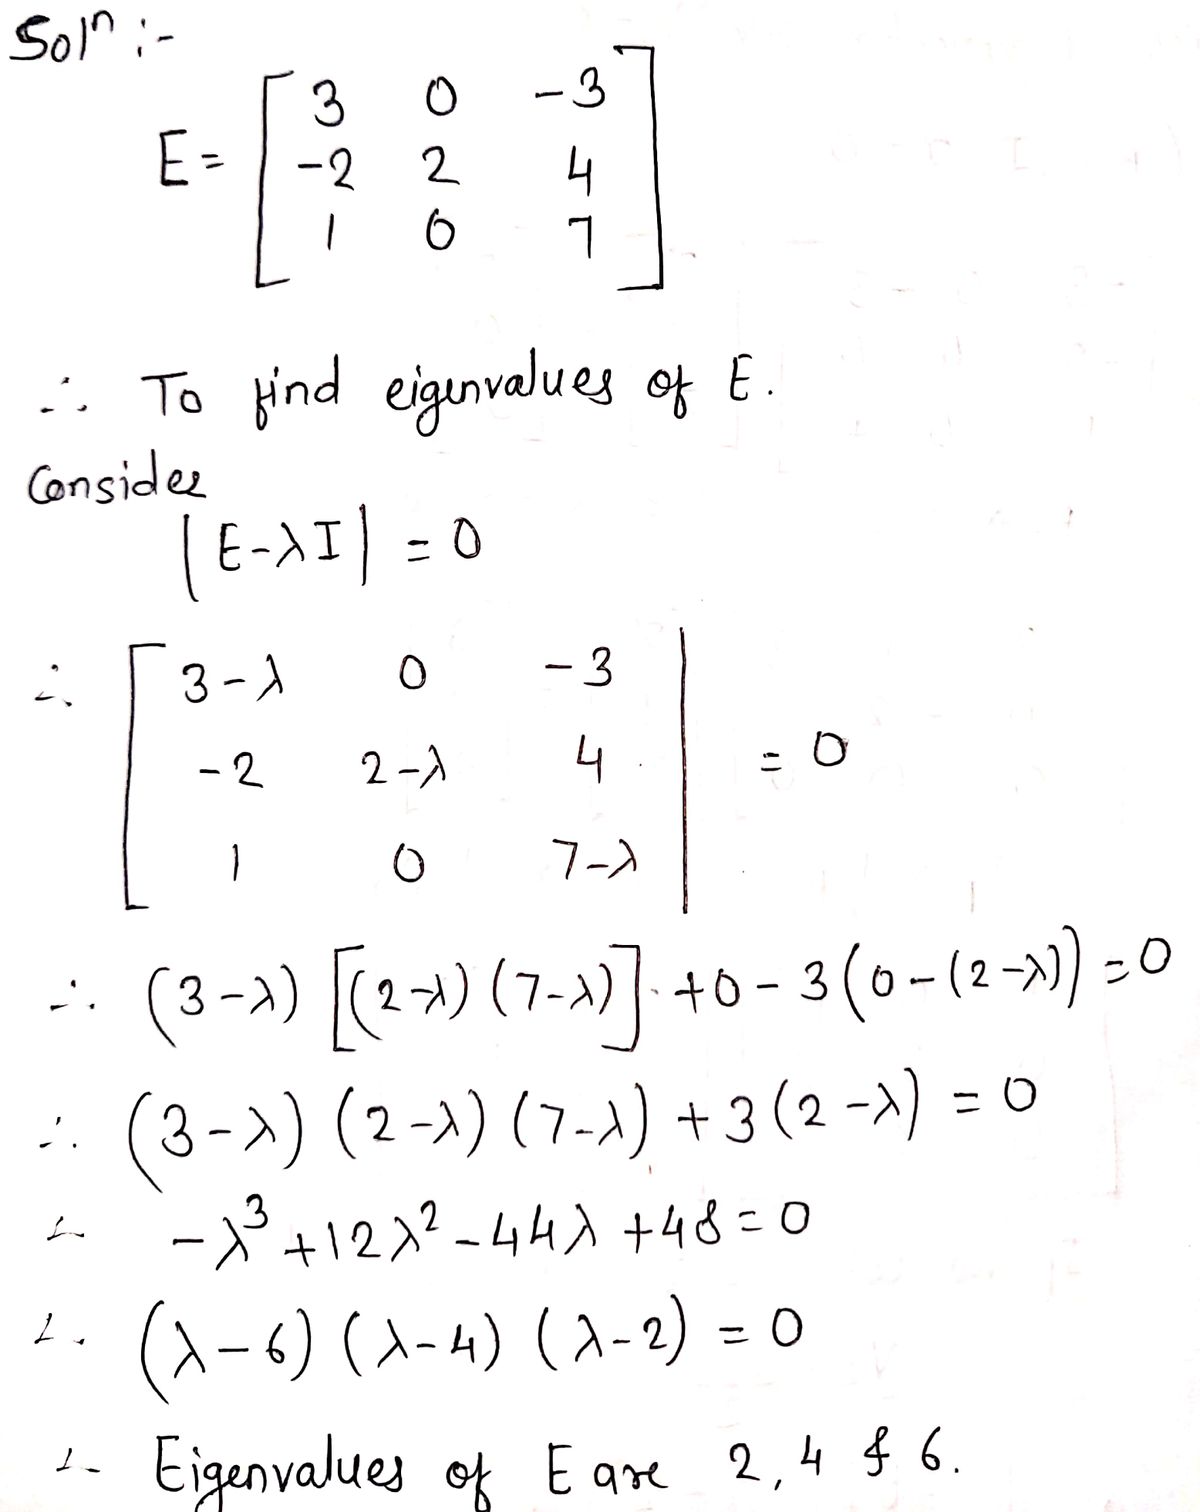 Solⁿ :-
E = [ 3 0 -3
-2 2 4
1 0 7 ]
∴ To find eigenvalues of E.
Consider
|E-λI| = 0
∴ [ 3-λ 0 -3
-2 2-λ 4 = 0
1 0 7-λ |
∴ (3-λ) [(2-λ) (7-λ)] + 0 - 3 (0 - (2-λ)) = 0
∴ (3-λ) (2-λ) (7-λ) + 3 (2-λ) = 0
∴ -λ³ + 12λ² - 44λ + 48 = 0
∴ (λ-6) (λ-4) (λ-2) = 0
∴ Eigenvalues of E are 2, 4 & 6.